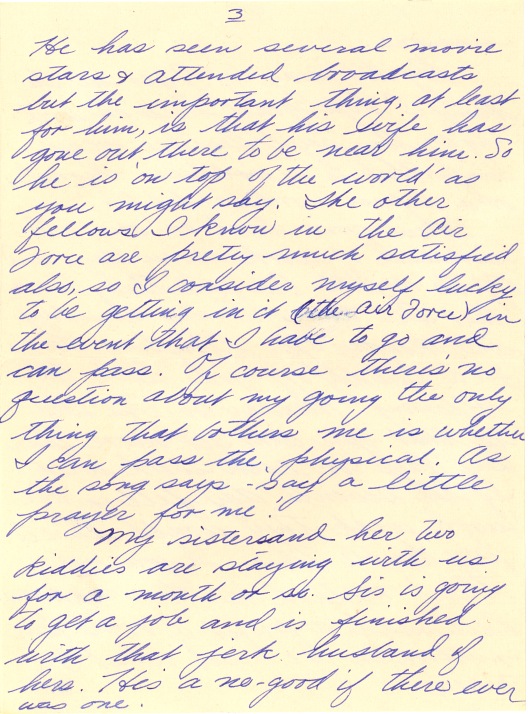 3
He has seen several movie
stars & attended broadcasts
but the important thing, at least
for him, is that his wife has
gone out there to be near him. So
he is 'on top of the world' as
you might say. The other
fellows I know in the Air
Force are pretty much satisfied
also, so I consider myself lucky
to be getting in it (the Air Force) in
the event that I have to go and
can pass. Of course there's no
question about my going the only
thing that bothers me is whether
I can pass the physical. As
the song says - 'say a little
prayer for me'.
My sister and her two
kiddies are staying with us
for a month or so. Sis is going
to get a job and is finished
with that jerk husband of
hers. He's a no-good if there ever
was one.